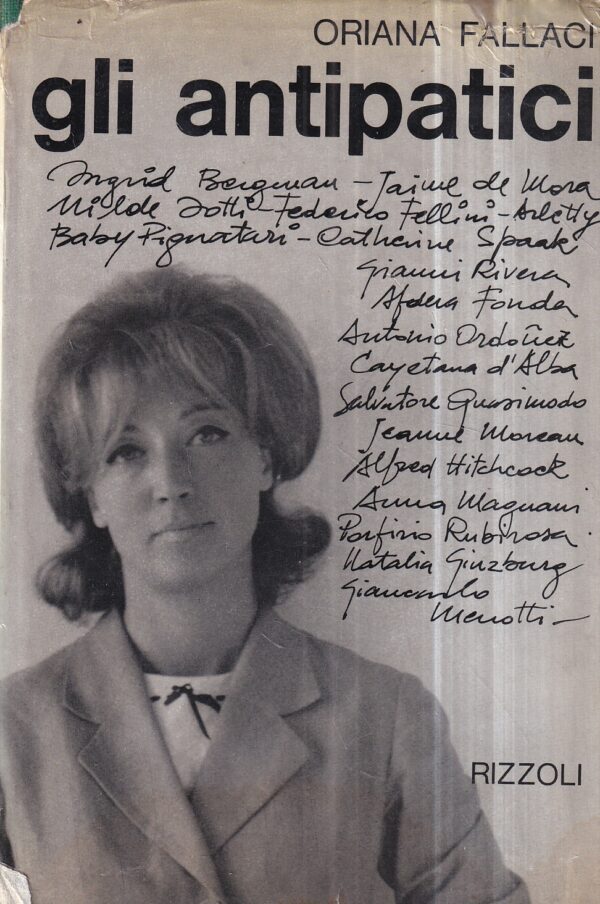 ORIANA FALLACI
gli antipatici
Ingrid Bergman – Jaime de Mora
Nilde Jotti – Federico Fellini – Arletty
Baby Pignatari – Catherine Spaak
Gianni Rivera
Afdera Fonda
Antonio Ordoñez
Cayetana d'Alba
Salvatore Quasimodo
Jeanne Moreau
Alfred Hitchcock
Anna Magnani
Porfirio Rubirosa
Natalia Ginzburg
Giancarlo
Menotti –
RIZZOLI